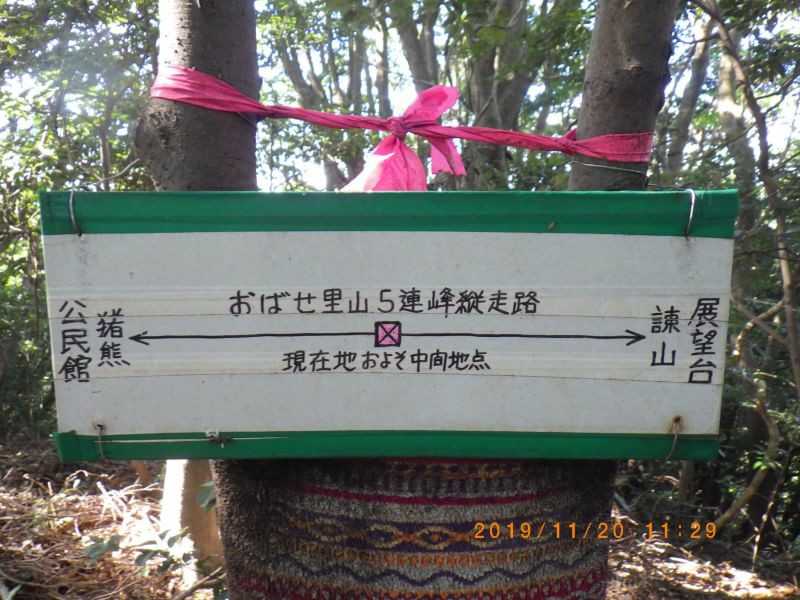 おばせ里山5連峰縦走路
猪熊
公民館
諌山
展望台
現在地およそ中间地点
2019/11/20 11:29